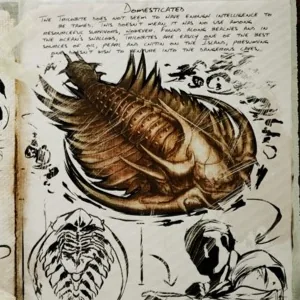 Domesticated
The Trilobite does not seem to have enough intelligence to
be tamed, this doesn't mean it has no use among
resourceful survivors, however. Found along beaches and in
the ocean's shallows, trilobites are easily one of the best
sources of oil, pearl and chitin on the island, presuming
one doesn't wish to venture into the dangerous caves.